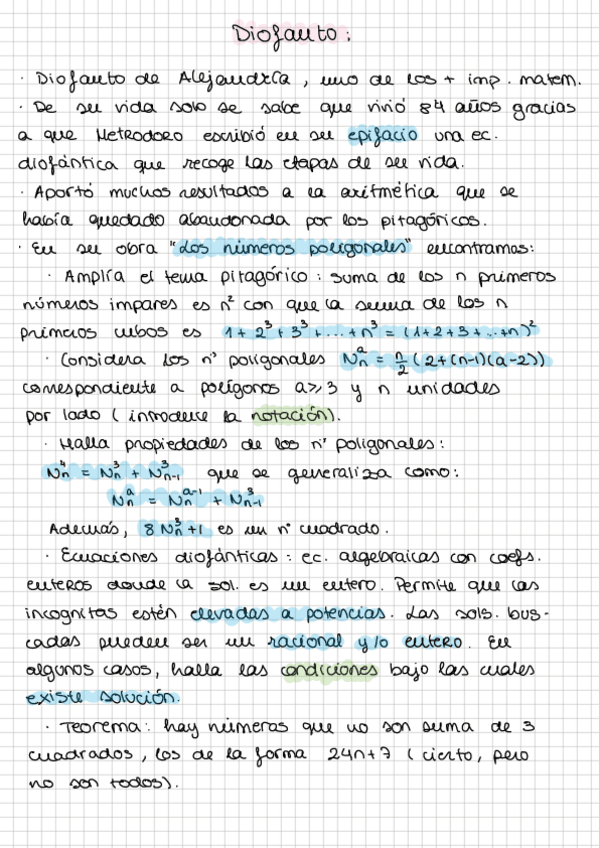 Diofanto:
· Diofanto de Alejandría, uno de los + imp. matem.
· De su vida solo se sabe que vivió 84 años gracias
a que Metrodoro escribió en su epifacio una ec.
diofántica que recoge las etapas de su vida.
· Aportó muchos resultados a la aritmética que se
había quedado abandonada por los pitagóricos.
· En su obra "Los números poligonales" encontramos:
· Amplía el tema pitagórico: suma de los n primeros
números impares es n² con que la suma de los n
primeros cubos es 1+2³+3³+...+n³ = (1+2+3+...+n)²
· Considera los nº poligonales Nₙᵃ = n/2 (2+(n-1)(a-2))
correspondiente a polígonos a≥3 y n unidades
por lado (introduce la notación).
· Halla propiedades de los nº poligonales:
Nₙ⁴ = Nₙ³ + Nₙ₋₁³ que se generaliza como:
Nₙᵃ = Nₙᵃ⁻¹ + Nₙ₋₁³
Además, 8Nₙ³+1 es un nº cuadrado.
· Ecuaciones diofánticas: ec. algebraicas con coefs.
enteros donde la sol. es un entero. Permite que las
incognitas estén elevadas a potencias. Las sols. bus-
cadas pueden ser un racional y/o entero. En
algunos casos, halla las condiciones bajo las cuales
existe solución.
· Teorema: hay números que no son suma de 3
cuadrados, los de la forma 24n+7 (cierto, pero
no son todos).